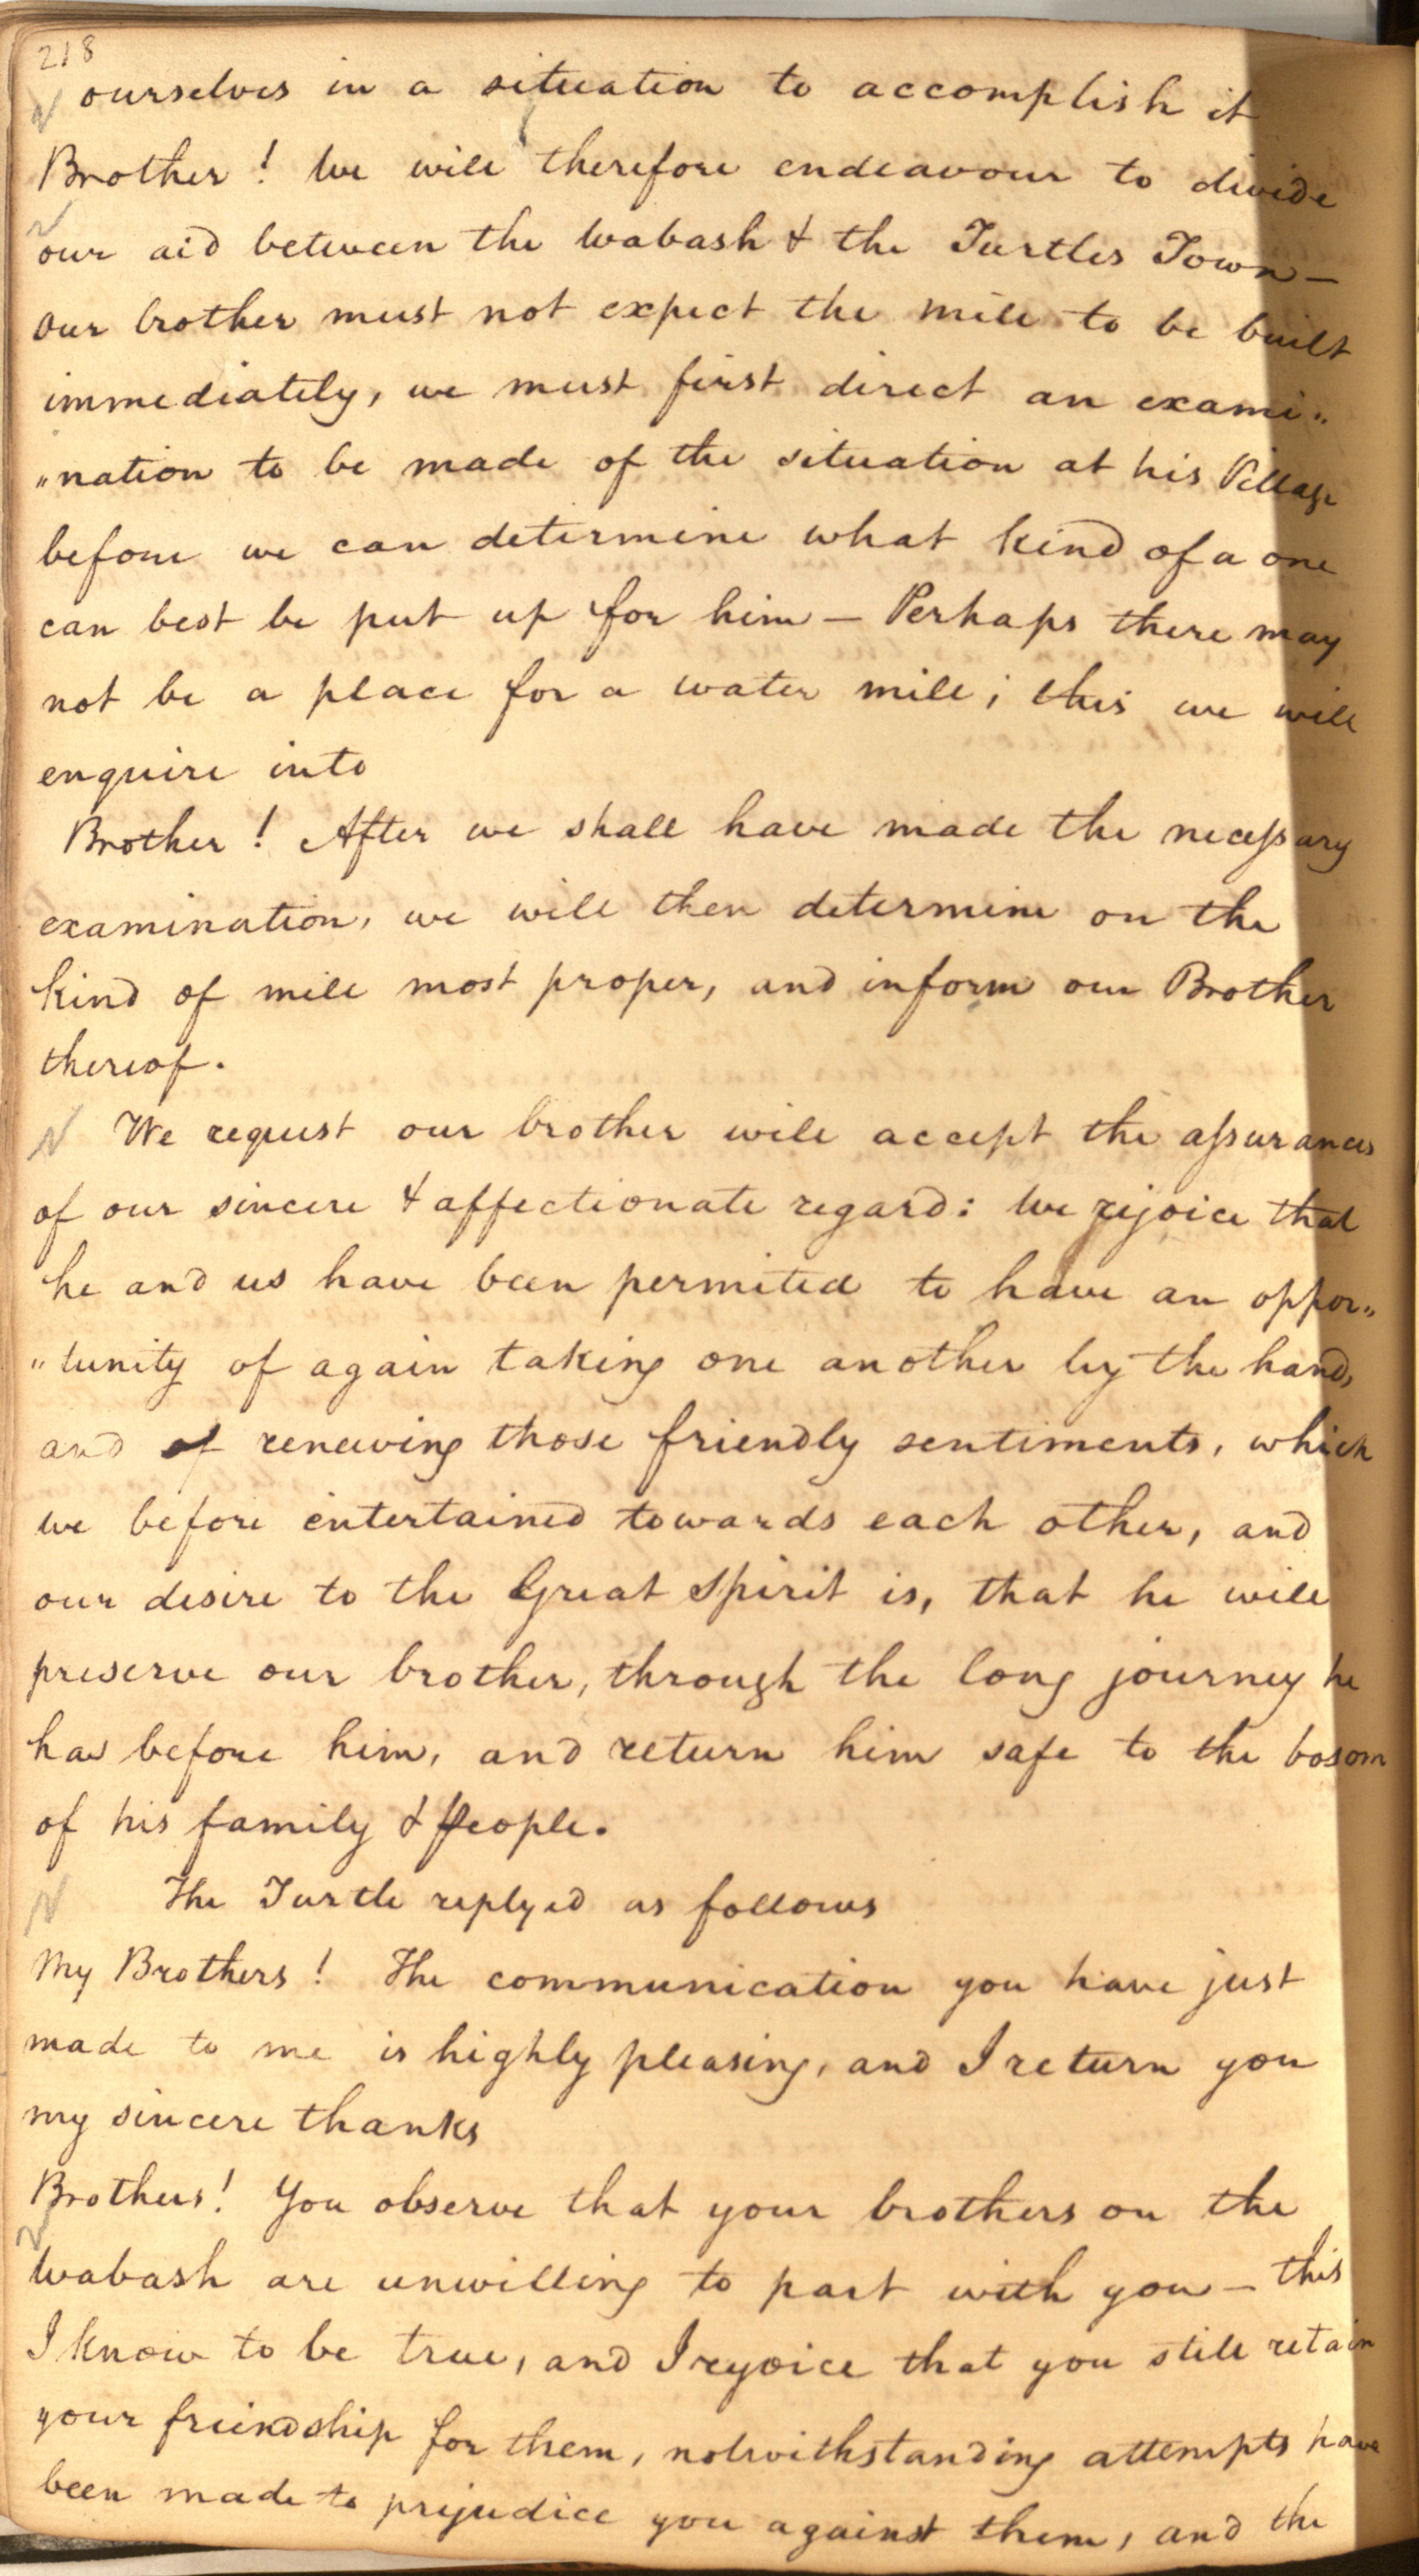 218
ourselves in a situation to accomplish it
Brother! We will therefore endeavour to divide
our aid between the Wabash & the Turtles Town—
Our brother must not expect the mill to be built
immediately, we must first direct an exami"
"nation to be made of the situation at his Village
before we can determine what kind of a one
can best be put up for him — Perhaps there may
not be a place for a water mill; this we will
enquire into
Brother! After we shall have made the necessary
examination, we will then determine on the
kind of mill most proper, and inform our Brother
thereof.
We request our brother will accept the assurances
of our sincere & affectionate regard: We rejoice that
he and us have been permited to have an oppor"
"tunity of again taking one another by the hand,
and of renewing those friendly sentiments, which
we before entertained towards each other, and
our desire to the Great Spirit is, that he will
preserve our brother, through the long journey he
has before him, and return him safe to the bosom
of his family & people.
The Turtle replyed as follows
My Brothers! The communication you have just
made to me is highly pleasing, and I return you
my sincere thanks
Brothers! You observe that your brothers on the
Wabash are unwilling to part with you — this
I know to be true, and I rejoice that you still retain
your friendship for them, notwithstanding attempts have
been made to prejudice you against them, and the